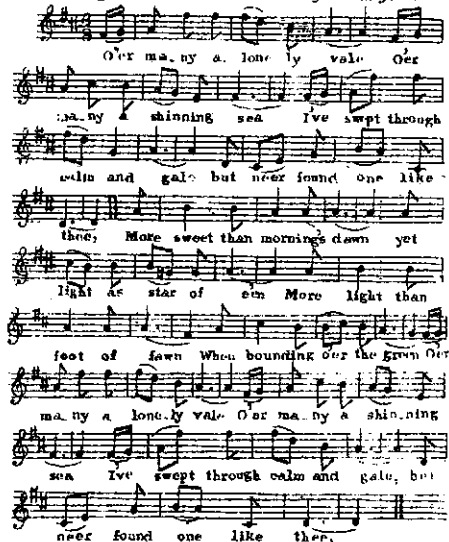 O'er ma_ny a lone_ly vale O'er
ma_ny a shinning sea I've swept through
calm and gale but neer found one like
thee, More sweet than mornings dawn yet
light as star of een More light than
foot of fawn When bounding o'er the green O'er
ma_ny a lone_ly vale O'er ma_ny a shin_ning
sea I've swept through calm and gale, but
neer found one like thee.